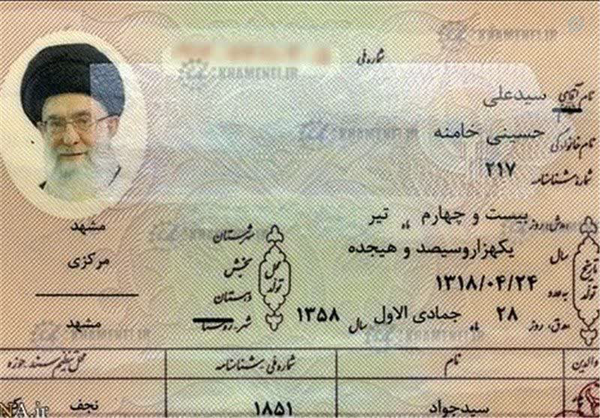 شماره ملی
KHAMENEI.IR
نام آقای سیدعلی
نام خانوادگی حسینی خامنه
شماره شناسنامه ۲۱۷
روز بیست و چهارم ماه تیر
سال یکهزاروسیصد و هیجده
تاریخ تولد
به عدد ۱۳۱۸/۰۴/۲۴
روز ۲۸ ماه جمادی الاول سال ۱۳۵۸
محل تولد
شهرستان مشهد
بخش مرکزی
دهستان
شهر-روستا مشهد
والدین نام شماره ملی-شناسنامه محل تنظیم سند-حوزه
سیدجواد ۱۸۵۱ نجف
NA.ir